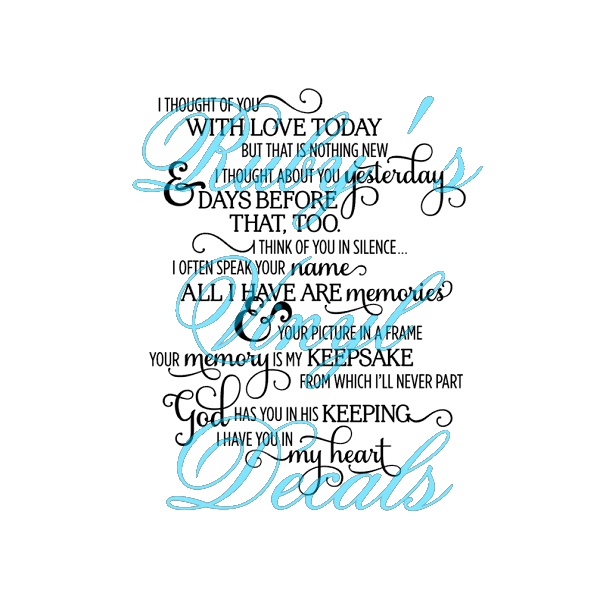 I THOUGHT OF YOU
WITH LOVE TODAY
BUT THAT IS NOTHING NEW
I THOUGHT ABOUT YOU yesterday
& DAYS BEFORE
THAT, TOO.
I THINK OF YOU IN SILENCE...
I OFTEN SPEAK YOUR name
ALL I HAVE ARE memories
& YOUR PICTURE IN A FRAME
YOUR memory IS MY KEEPSAKE
FROM WHICH I'LL NEVER PART
God HAS YOU IN HIS KEEPING
I HAVE YOU IN
my heart
Ruby's
Vinyl
Decals